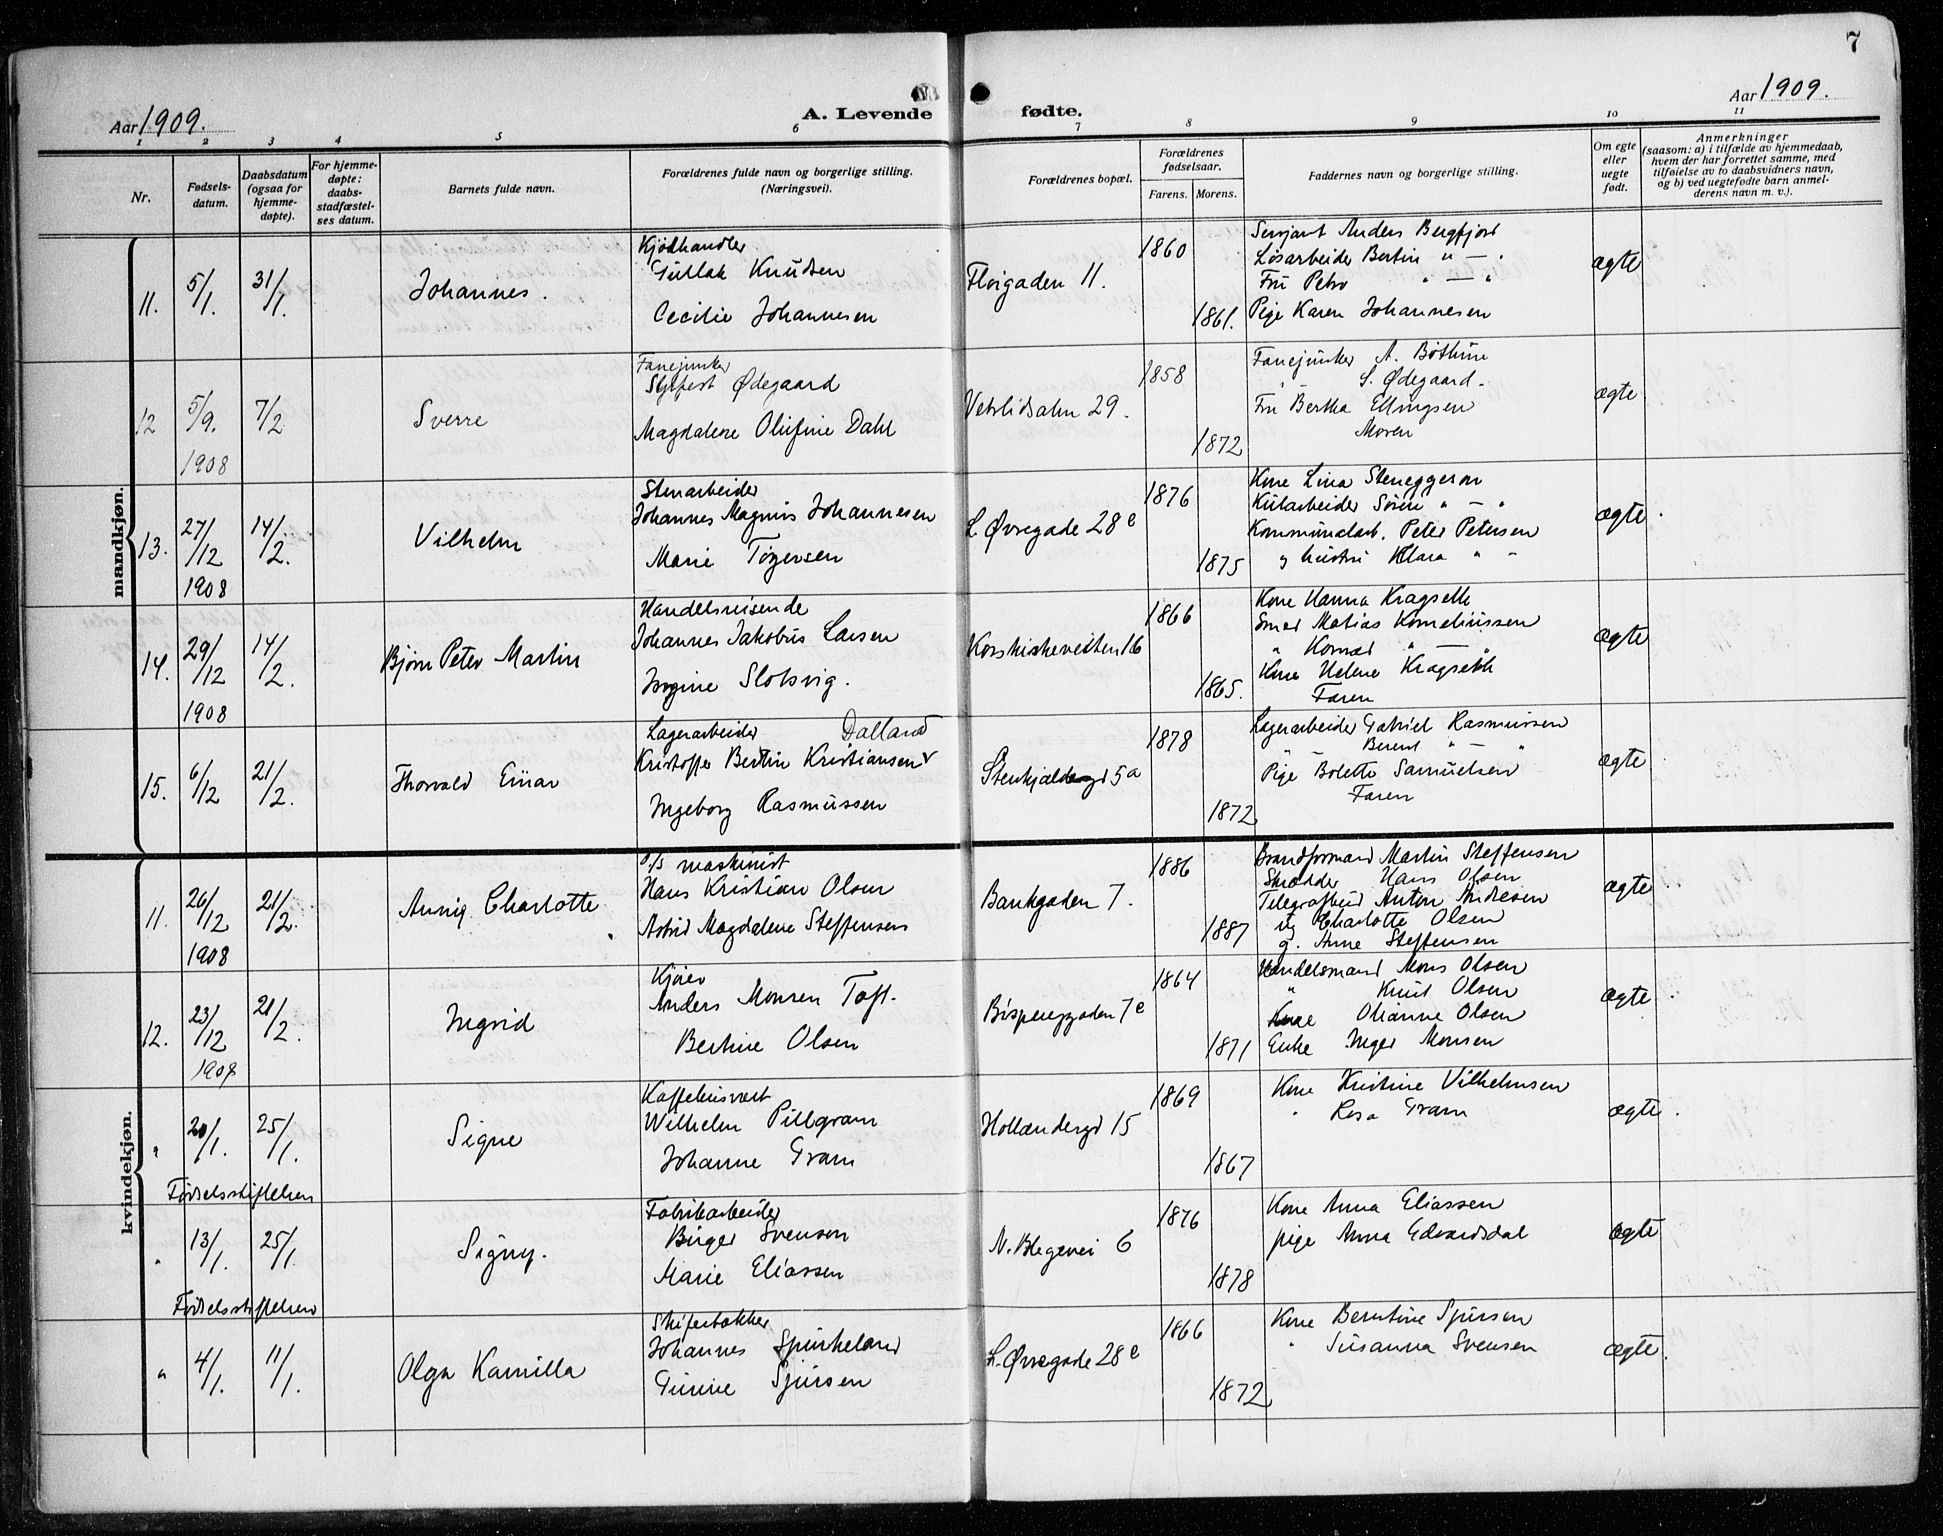 7
Aar 1909.
A. Levende fødte.
Aar 1909.
1 2 3 4 5 6 7 8 9 10 11
Nr.
Fødsels-
datum.
Daabsdatum
(ogsaa for
hjemme-
døpte).
For hjemme-
døpte:
daabs-
stadfæstel-
ses datum.
Barnets fulde navn.
Forældrenes fulde navn og borgerlige stilling.
(Næringsvei).
Forældrenes bopæl.
Forældrenes
fødselsaar.
Farens. Morens.
Faddernes navn og borgerlige stilling.
Om egte
eller
uegte
født.
Anmerkninger
(saasom: a) i tilfælde av hjemmedaab,
hvem der har forrettet samme, med
tilføielse av to daabsvidners navn,
og b) ved uegtefødte barn anmel-
derens navn m. v.).
mandkjøn.
11. 5/1. 31/1. Johannes.
Kjødhandler
Gullak Knudsen
Cecilie Johannesen
Fløigaden 11.
1860
1861.
Serjant Anders Bergfjord
Løsarbeider Bertin " — "
Fru Petra " — "
Pige Karen Johannesen
ægte
12 5/9. 1908 7/2 Sverre
Fanejunker
Sylfest Ødegaard
Magdalene Olufine Dahl
Vetrlidsalm 29.
1858
1872
Fanejunker A. Bøthun
" S. Ødegaard.
Fru Bertha Ellingsen
Moren
ægte
13. 27/12 1908 14/2. Vilhelm
Stenarbeider
Johannes Magnus Johannesen
Marie Tøgersen
L. Øvregade 28e
1876
1875
Kone Lina Steneggeson
Kularbeider Søren " — "
Kommunalarb. Peter Petersen
og hustru Klara " "
ægte.
14. 29/12 1908 14/2. Bjørn Peter Martin
Handelsreisende
Johannes Jakobus Larsen
Ingine Slotsvig.
Korskirkeveiten 16
1866
1865.
Kone Hanna Kragseth
Smed Matias Korneliussen
" Konrad " — "
Kone Helene Kragseth
Faren
ægte
15. 6/12 21/2. Thorvald Einar
Lagerarbeider Dalland
Kristoffer Bertin Kristiansen
Ingeborg Rasmussen
Stenkjeldergd 5a
1878
1872
Lagerarbeider Gabriel Rasmussen
" Berent " — "
Pige Bolette Samuelsen
Faren
ægte
kvindekjøn.
11. 26/12 1908 21/2. Annig Charlotte
D/S maskinist
Hans Kristian Olsen
Astrid Magdalene Steffensen
Bankgaden 7.
1886
1887
Brandformand Martin Steffensen
Skrædder Hans Olsen
Telegrafbud Anton Andresen
Charlotte Olsen
g. Anne Steffensen
ægte
12. 23/12 1908 21/2. Ingrid
Kjører
Anders Monsen Toft.
Bertine Olsen
Bispenggaden 7e
1864
1871
Handelsmand Mons Olsen
" Knut Olsen
Kone Olianne Olsen
Enke Inger Monsen
ægte
" 20/1. 25/1. Signe
Fødselsstiftelsen
Kaffehusvert
Wilhelm Pillgram
Johanne Gram
Hollændergd 15
1869
1867
Kone Kristine Vilhelmsen
" Rosa Gram
ægte.
" 13/1. 25/1. Signy.
Fødselsstiftelsen
Fabrikarbeider
Birger Svenson
Marie Eliassen
N. Blegevei 6
1876
1878
Kone Anna Eliassen
pige Anna Edvardsdal
ægte
" 4/1. 11/1. Olga Kamilla
Skifertækker
Johannes Spurkeland
Gurine Sjursen
L. Øvregade 28e
1866
1872
Kone Berntine Sjursen
" Susanna Svensen
ægte.